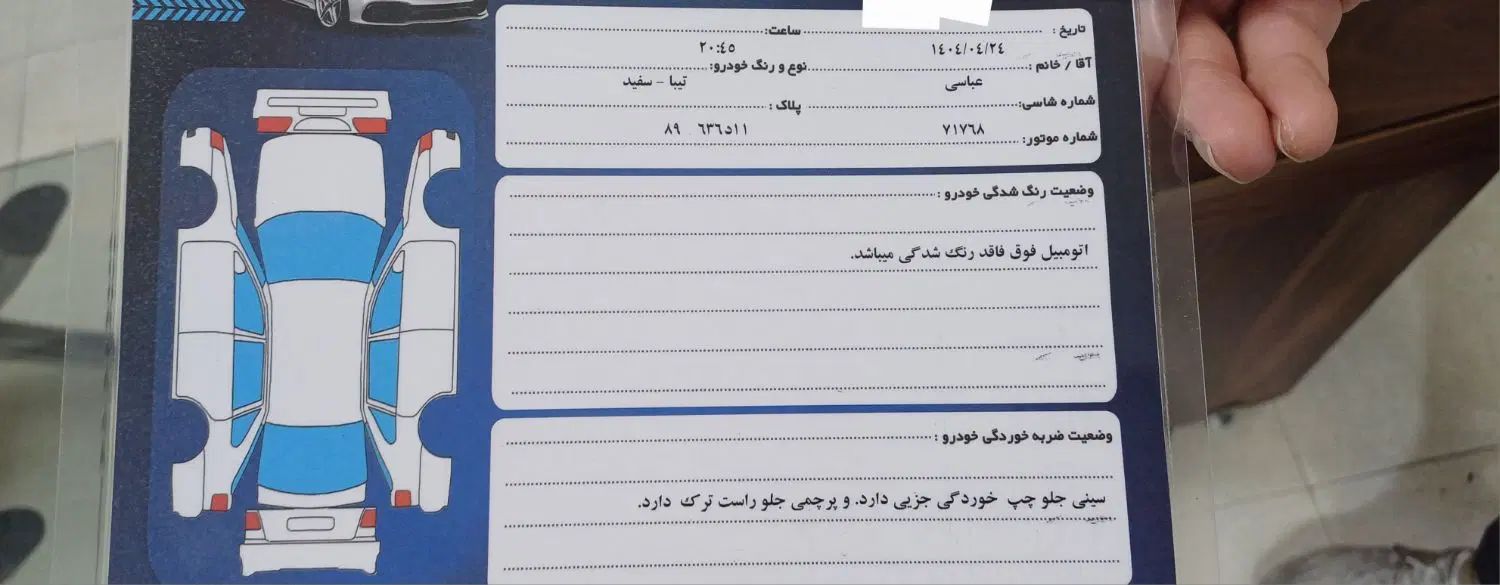 تاریخ : ساعت:
۱۴۰۴/۰۴/۲۴ ۲۰:۴۵
آقا / خانم : نوع و رنگ خودرو:
عباسی تیبا - سفید
شماره شاسی: پلاک :
۷۱۷۶۸ ۱۱د۶۳۶ ۸۹
شماره موتور:
وضعیت رنگ شدگی خودرو :
اتومبیل فوق فاقد رنگ شدگی میباشد.
وضعیت ضربه خوردگی خودرو :
سینی جلو چپ خوردگی جزیی دارد. و پرچمی جلو راست ترک دارد.